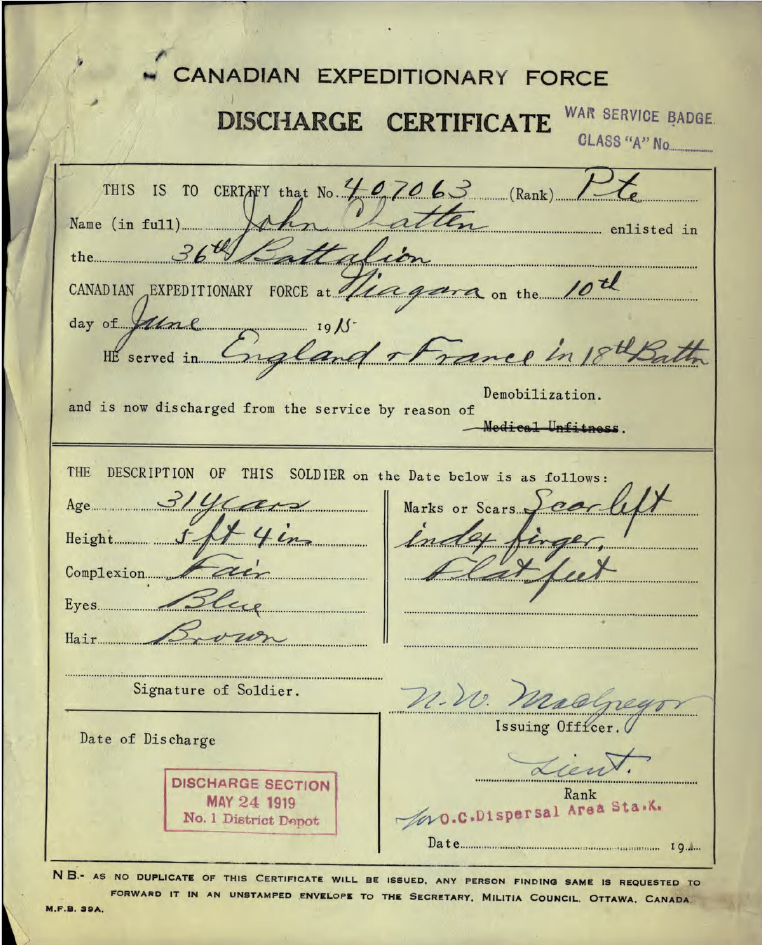 CANADIAN EXPEDITIONARY FORCE
DISCHARGE CERTIFICATE
WAR SERVICE BADGE
CLASS "A" No
THIS IS TO CERTIFY that No. 407063 (Rank) Pte
Name (in full) John Chatten enlisted in
the 36th Battalion
CANADIAN EXPEDITIONARY FORCE at Niagara on the 10th
day of June 1915
HE served in England & France in 18th Battn
and is now discharged from the service by reason of Demobilization.
Medical Unfitness.
THE DESCRIPTION OF THIS SOLDIER on the Date below is as follows:
Age 31 years
Height 5 ft 4 ins
Complexion Fair
Eyes Blue
Hair Brown
Marks or Scars Scar left
index finger,
Flat feet
Signature of Soldier.
N.W. MacGregor
Issuing Officer.
Lieut.
Rank
for O.C. Dispersal Area Sta.K.
Date 191
Date of Discharge
DISCHARGE SECTION
MAY 24 1919
No. 1 District Depot
NB.- AS NO DUPLICATE OF THIS CERTIFICATE WILL BE ISSUED, ANY PERSON FINDING SAME IS REQUESTED TO
FORWARD IT IN AN UNSTAMPED ENVELOPE TO THE SECRETARY, MILITIA COUNCIL. OTTAWA, CANADA
M.F.B. 39A.